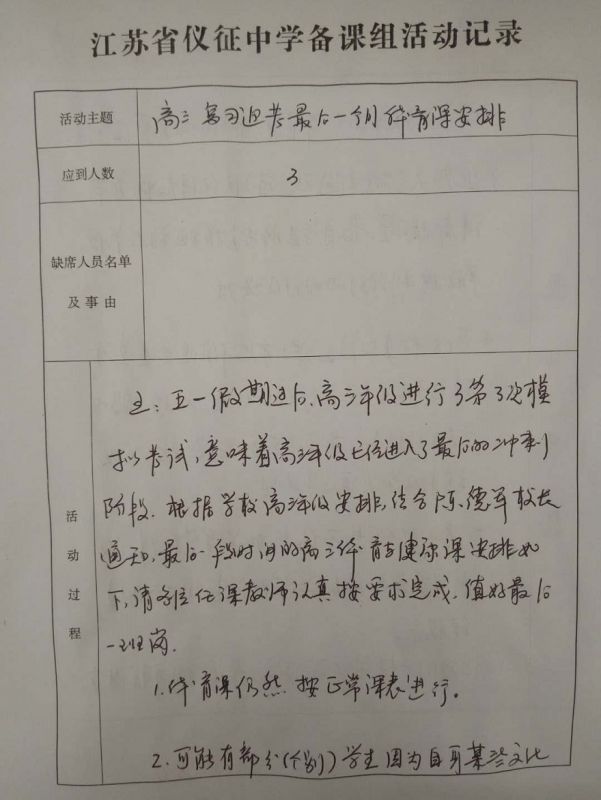 江苏省仪征中学备课组活动记录
活动主题
高三复习迎考最后一个月体育课安排
应到人数
3
缺席人员名单
及事由
活动过程
王：五一假期过后，高三年级进行了第3次模
拟考试，意味着高三年级已经进入了最后的冲刺
阶段。根据学校高三年级安排，结合陈德军校长
通知，最后一段时间的高三体育与健康课安排如
下，请各位任课教师认真按要求完成，值好最后
一班岗。
1.体育课仍然按正常课表进行。
2.可能有部分(个别)学生因为自身某些文化